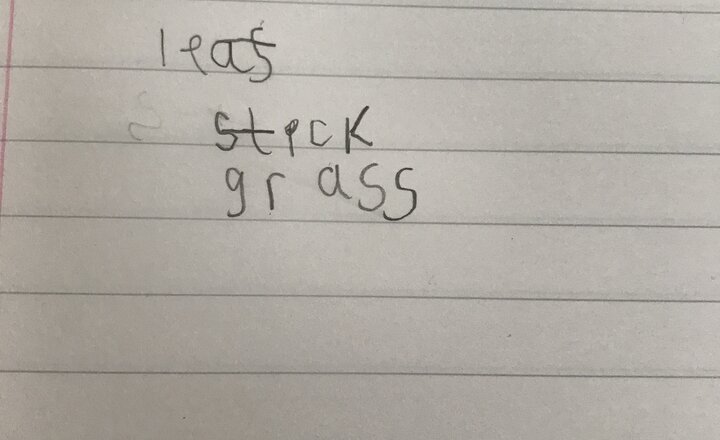 leaf
stick
grass